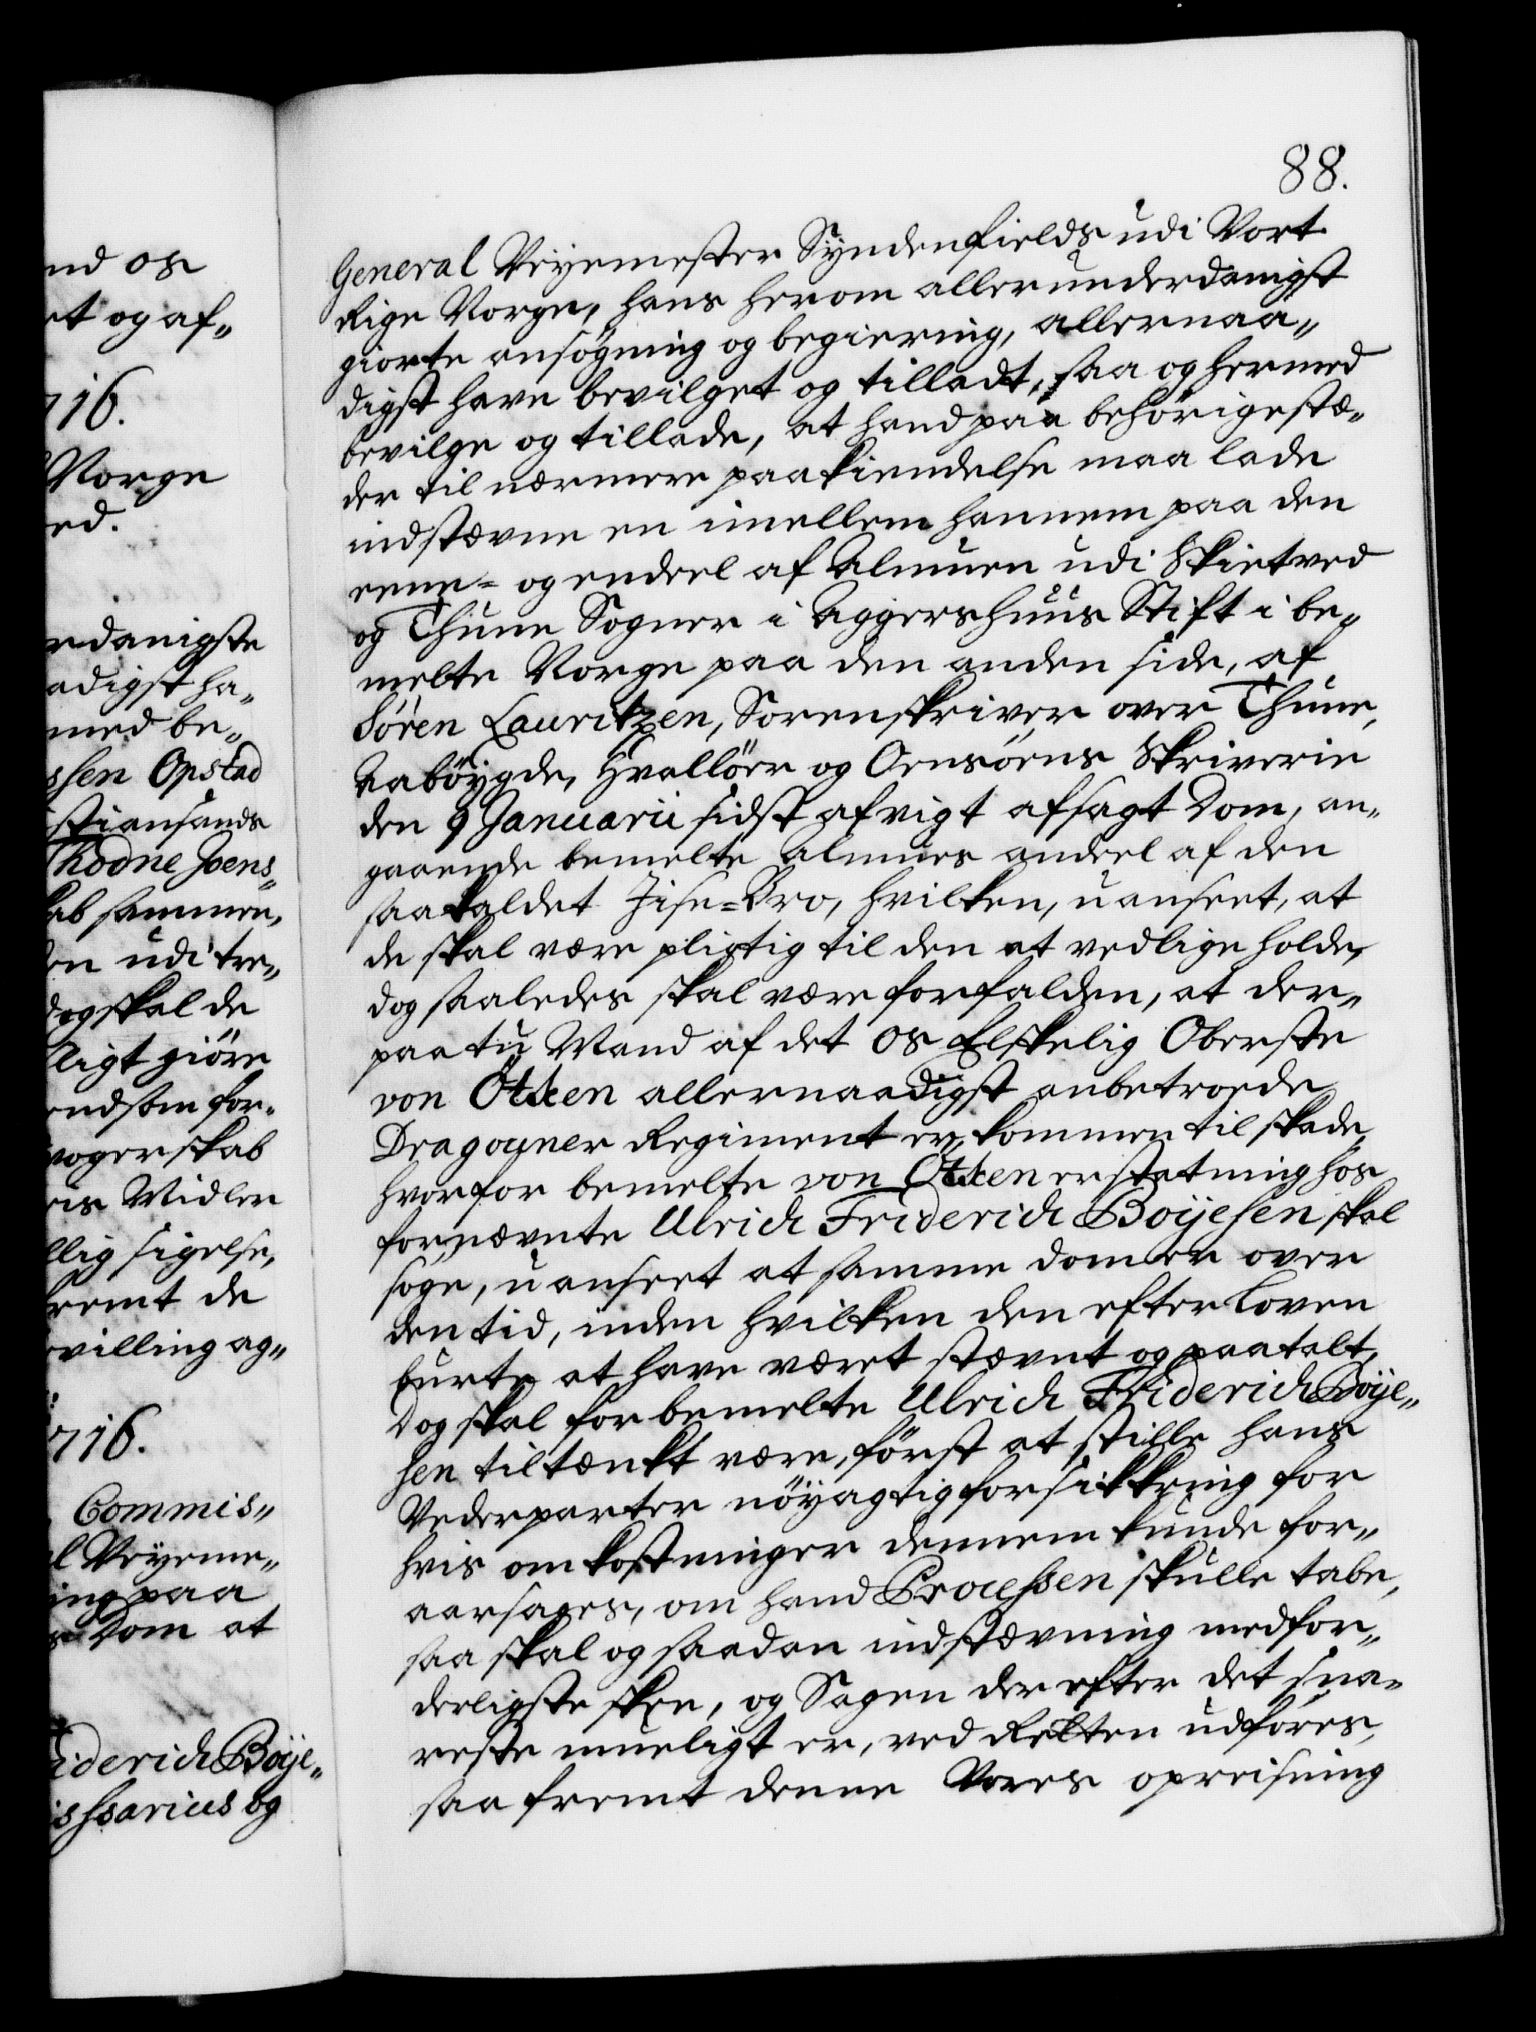 nd os
et og af„
716.
Norge
ed.
rdanigste
adigst ha„
med be„
shen Opstad
stiansands
Thodne Joens„
kab sammen„
en udi tre„
dog skal de
lligt giøre
endsom for„
voger skab
ris Midler
llig sigelse,
fremt de
evilling ag„
716.
Commis„
l Veyeme„
ing paa
s Dom at
riderich Böije„
isharius og
88.
General Veyemester Syndenfields udi Vort
Rige Norge, hans herom allerunderdanigst
giorte ansøgning og begiering, allernaa„
digst have bevilget og tilladt, saa og hermed
bevilge og tillade, at hand paa behörige stæ„
der til nærmere paakiendelse maa lade
indstævne en imellem hannem paa den
eene- og endeel af Almuen udi Skietved
og Thune Sogner i Aggershuus Stift i be„
melte Norge paa den anden side, af
Sören Lauritzen, Sorenskriver over Thune,
Aaböygde, Hvallöer og Onsöens Skriverie
den 9 Januarii sidst afvigt afsagt Dom, an„
gaaende bemelte Almues andeel af den
saakaldet Jise-Bro, hvilken, uanseet, at
de skal være pligtig til den at vedlige holde,
dog saaledes skal være forfalden, at der„
paa tu Mand af det os Elskelig Oberste
von Ötken allernaadigst anbetroede
Dragouner Regiment er kommen til skade,
hvorfor bemelte von Ötken erstatning hos
fornævnte Ulrich Friderich Böijesen skal
söge, uanseet at samme dom er over
den tid, inden hvilken den efter Loven
burte at have været stævnt og paatalt,
Dog skal forbemelte Ulrich Friderich Böije„
sen tiltænkt være, först at stille hans
Vederparter nöyagtig forsikkring for
hvis omkostninger dennem kunde for„
aarsages, om hand Processen skulle tabe,
saa skal og saadan indstævning medfor„
derligste skee, og Sagen der efter det sna„
reste mueligt er, ved Retten udföres,
saa fremt denne Vores opreisning